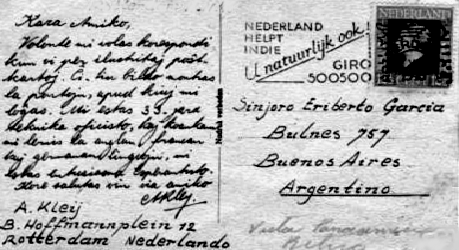 Kara Amiko,
Volonte mi volas korespondi
kun vi per ilustritaj poŝt-
kartoj. Ĉi tiu bildo montras
la pontojn, apud kiuj mi
loĝas. Mi estas 33 jara
teknika oficisto, kaj konkom
mi lernis la anglan, francan
kaj germanan lingvojn, mi
estas entuziasma Esperantisto.
Kore salutas vin via amiko
AKleij.
A. Kleij
B. Hoffmannplein 12
Rotterdam Nederlando
NEDERLAND
HELPT
INDIE
U natuurlijk ook!
GIRO
500500
NEDERLAND
Sinjoro Eriberto Garcia
Bulnes 757
Buenos Aires
Argentino